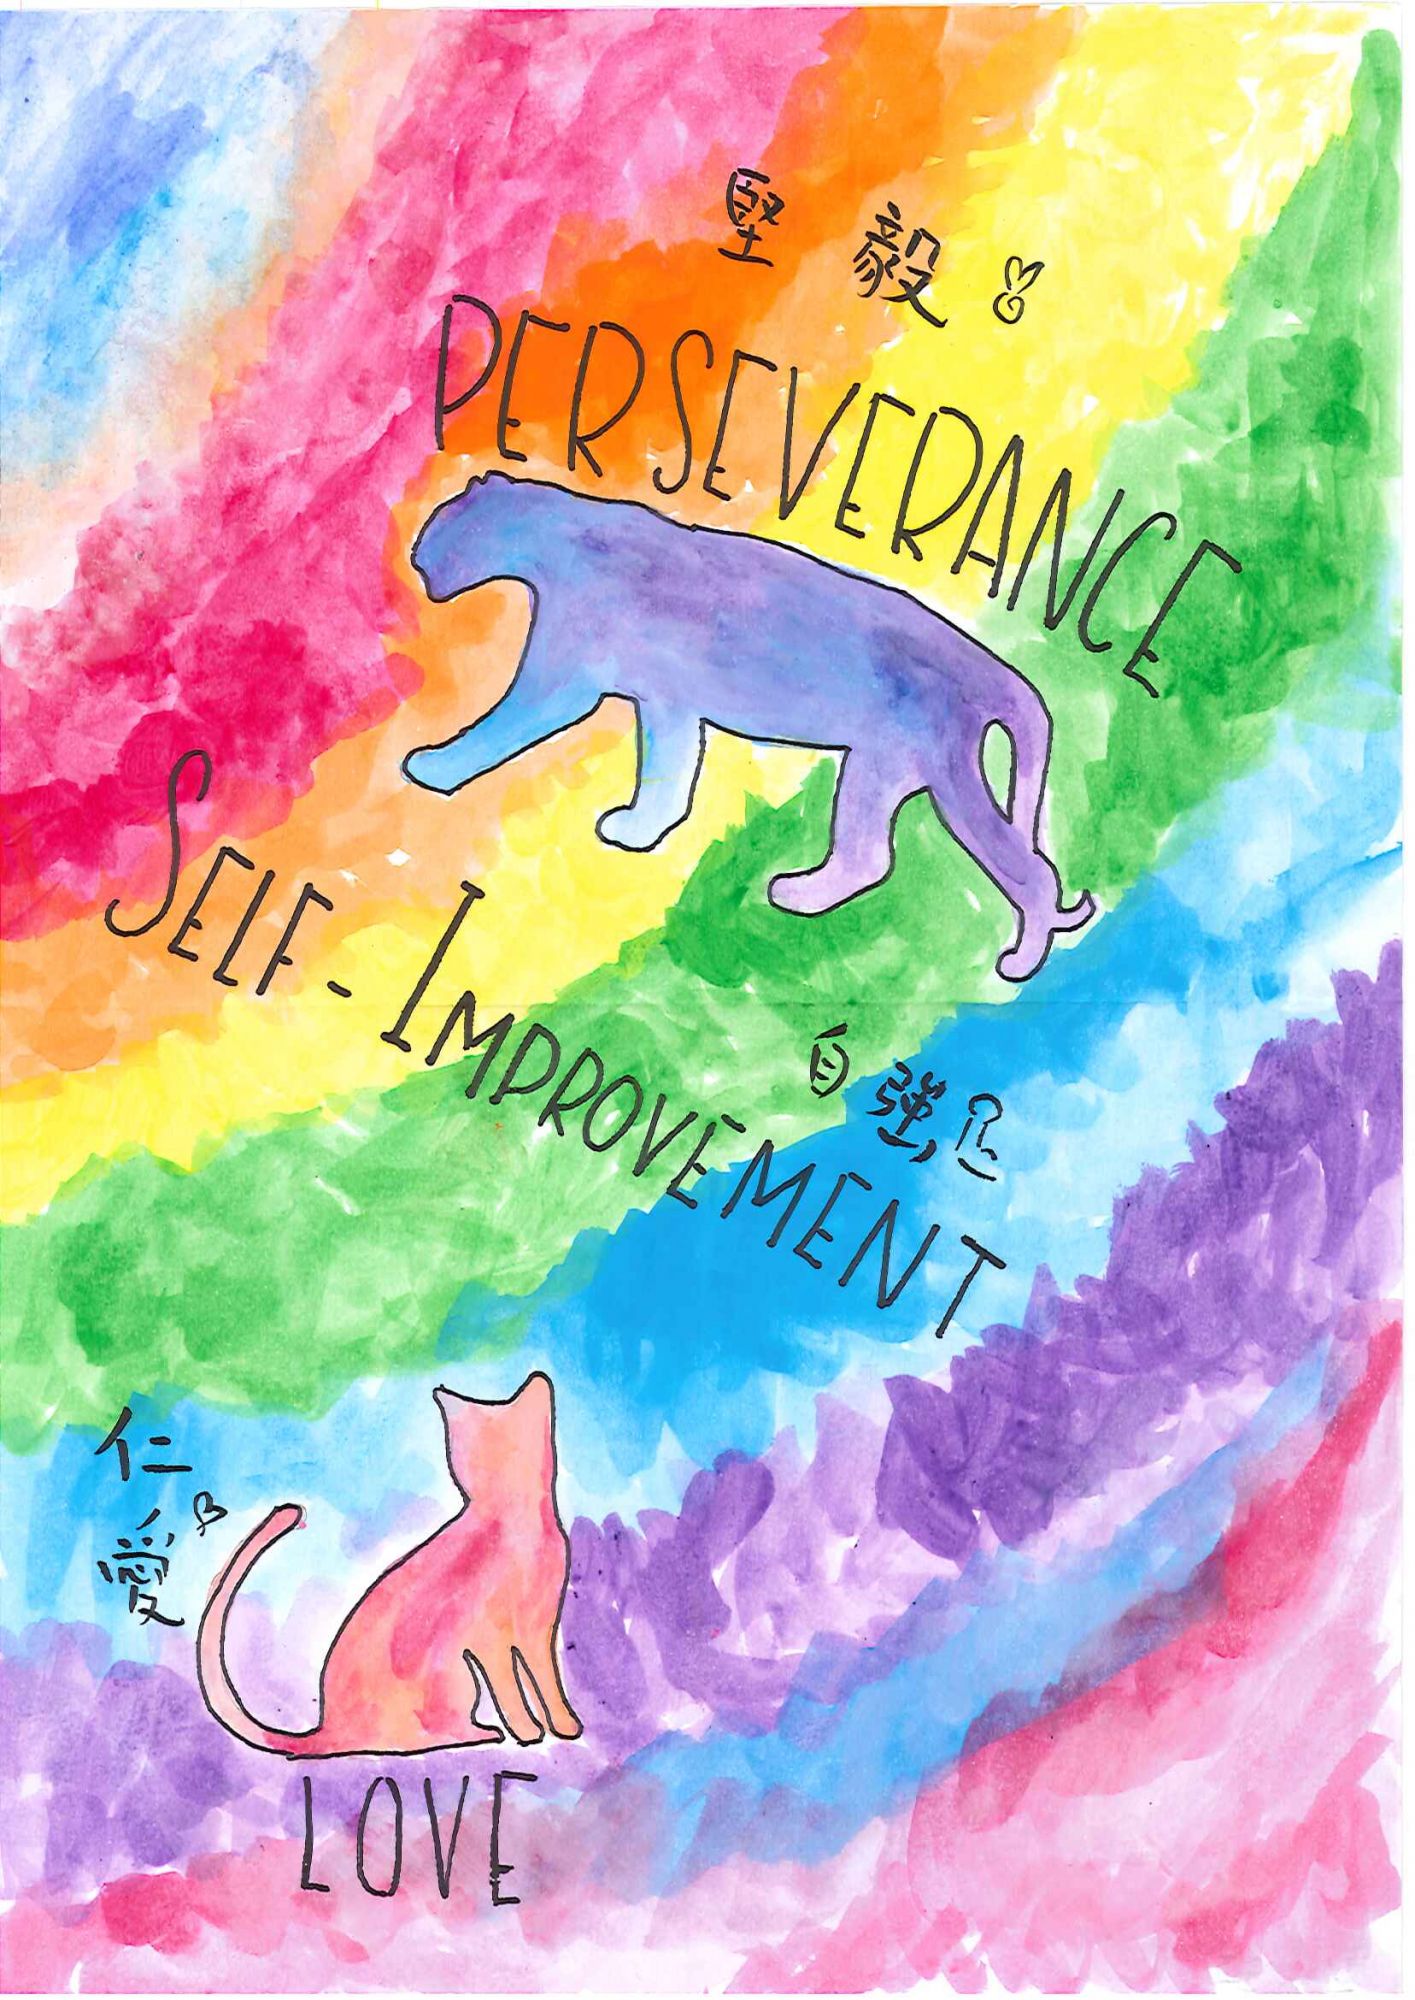 堅毅
PERSEVERANCE
SELF-IMPROVEMENT
自強
仁
愛
LOVE